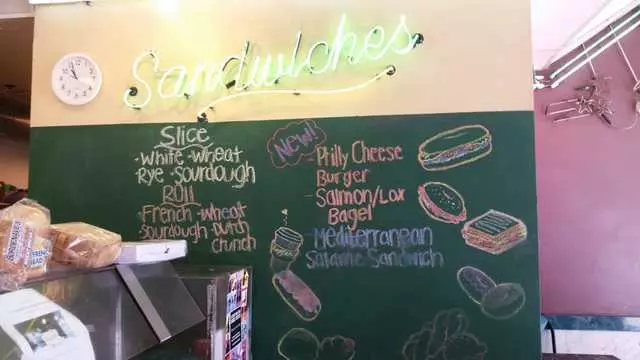 Sandwiches
Slice
- White - Wheat
Rye - Sourdough
Roll
- French - Wheat
Sourdough - Dutch
Crunch
New!
- Philly Cheese
Burger
- Salmon/Lox
Bagel
- Mediterranean
Salame Sandwich